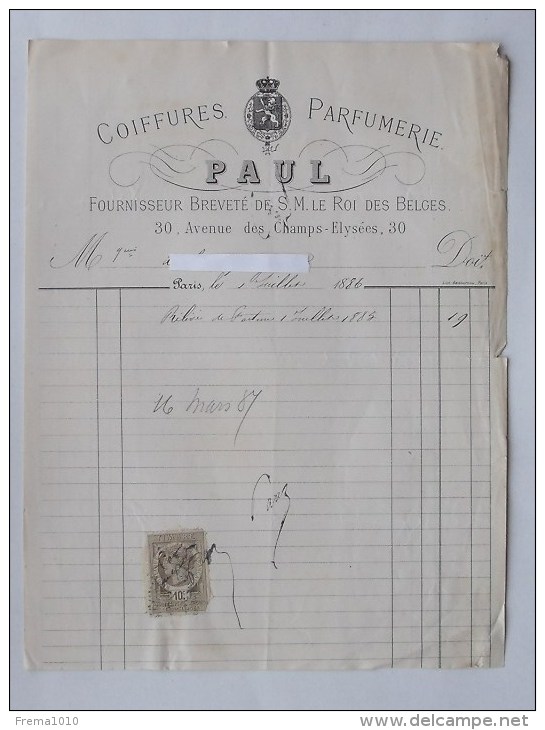 COIFFURES. PARFUMERIE.
PAUL
FOURNISSEUR BREVETÉ DE S.M. LE ROI DES BELGES.
30, Avenue des Champs-Elysées, 30
M Doit
Paris, le 1er Juillet 1886
Relevé de Facture 1er Juillet 1886 19
16 Mars 87
Paul
10c
Frema1010
www.delcampe.net